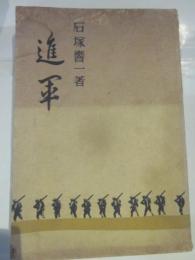 石塚喬一著
進軍